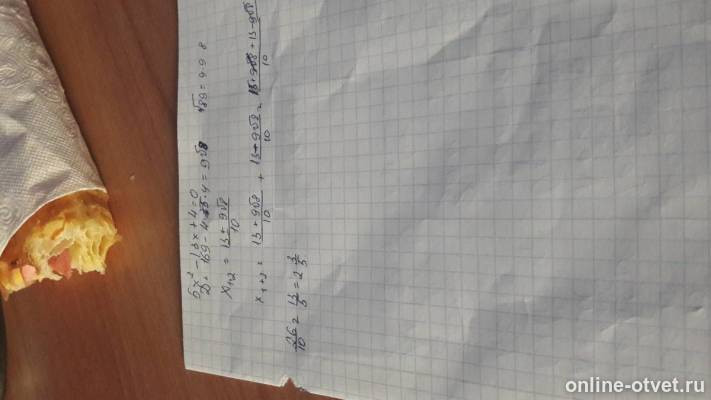 5x² - 13x + 4 = 0
D = 169 - 4 · 5 · 4 = 9√8
x₁,₂ = (13 ± 9√8)/10
x₁+₂ = (13 + 9√8)/10 + (13 - 9√8)/10 = (13 + 9√8 + 13 - 9√8)/10
26/10 = 13/5 = 2 3/5
online-otvet.ru